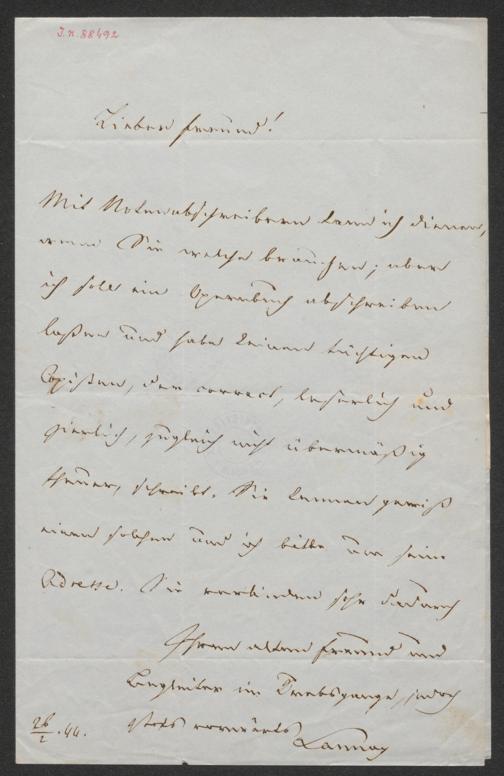 I.N. 88492
Lieber Freund!
Mit Notenabschreibern kann ich dienen,
wenn Sie welche brauchen; aber
ich soll ein Opernbuch abschreiben
laßen und habe keinen tüchtigen
Copisten, der correct, leserlich und
zierlich, zugleich nicht übermäßig
theuer, schreibt. Sie kennen gewiß
einen solchen und ich bitte um seine
Adresse. Sie verbinden sehr dadurch
Ihren alten Freund und
Begleiter im Krebsgange, jedoch
stets vorwärts
Lannoy
26/2.44.